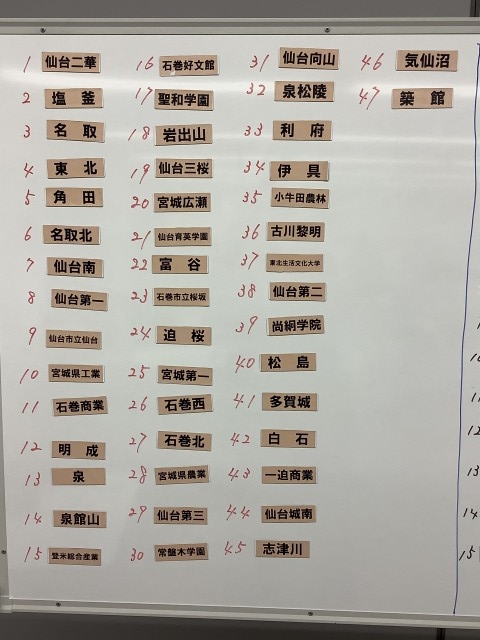 1 仙台二華
2 塩釜
3 名取
4 東北
5 角田
6 名取北
7 仙台南
8 仙台第一
9 仙台市立仙台
10 宮城県工業
11 石巻商業
12 明成
13 泉
14 泉館山
15 登米総合産業
16 石巻好文館
17 聖和学園
18 岩出山
19 仙台三桜
20 宮城広瀬
21 仙台育英学園
22 富谷
23 石巻市立桜坂
24 迫桜
25 宮城第一
26 石巻西
27 石巻北
28 宮城県農業
29 仙台第三
30 常盤木学園
31 仙台向山
32 泉松陵
33 利府
34 伊具
35 小牛田農林
36 古川黎明
37 東北生活文化大学
38 仙台第二
39 尚絅学院
40 松島
41 多賀城
42 白石
43 一迫商業
44 仙台城南
45 志津川
46 気仙沼
47 築館
11
12
13
14
15